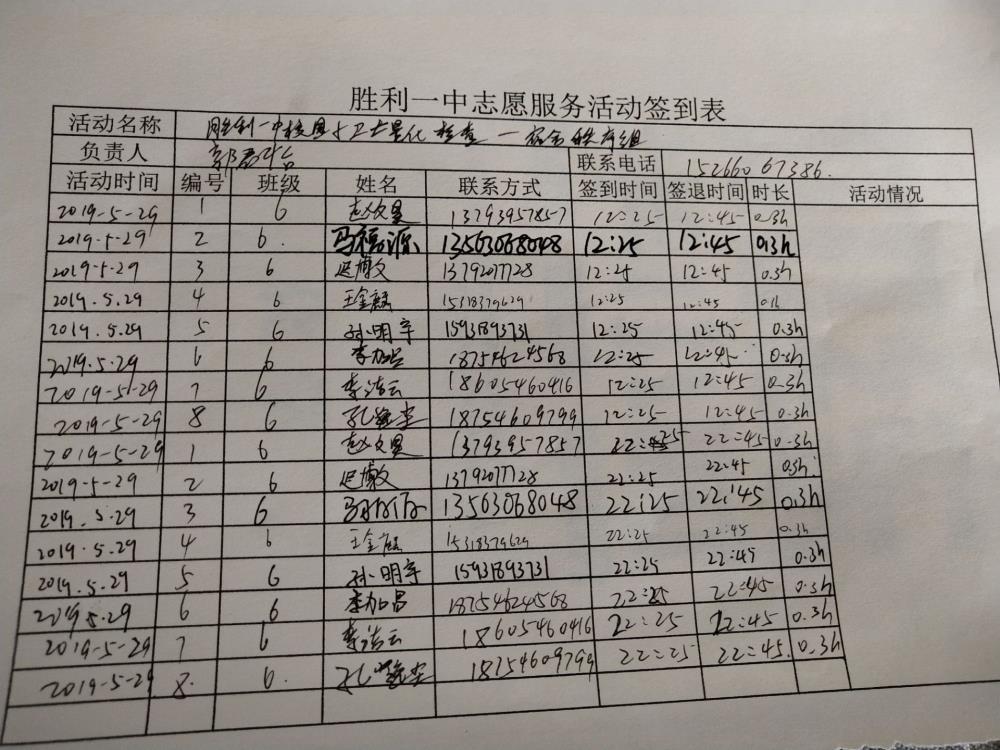 胜利一中志愿服务活动签到表
活动名称 胜利一中校园 卫生量化检查—宿舍秩序组
负责人 联系电话 15266067386.
活动时间 编号 班级 姓名 联系方式 签到时间 签退时间 时长 活动情况
2019-5-29 1 6 赵文昊 13793957857 12:25 12:45 0.3h
2019-5-29 2 6. 马福源 13563068048 12:25 12:45 0.3h
2019-5-29 3 6 迟博文 13792077728 12:25 12:45 0.3h
2019.5.29 4 6 王金麟 15318379629 12:25 12:45
2019.5.29 5 6 孙明宇 15931893731 12:25 12:45 0.3h
2019.5.29 6 6 李加昌 18754624568 12:25 12:45 0.3h
2019-5-29 7 6 李洁云 18605460416 12:25 12:45 0.3h
2019-5-29 8 6 孔 18754609799 12:25 12:45 0.3h
2019-5-29 1 6 赵文昊 13793957857 22:25 22:45 0.3h
2019-5-29 2 6 迟博文 13792077728 22:25 22:45 0.3h
2019.5.29 3 6 13563068048 22:25 22:45 0.3h
2019.5.29 4 6 王金麟 15318379629 22:25 22:45 0.3h
2019.5.29 5 6 孙明宇 15931893731 22:25 22:45 0.3h
2019.5.29 6 6 李加昌 18754624568 22:25 22:45 0.3h
2019-5-29 7 6 李洁云 18605460416 22:25 22:45 0.3h
2019-5-29 8. 6. 孔 18754609799 22:25 22:45. 0.3h